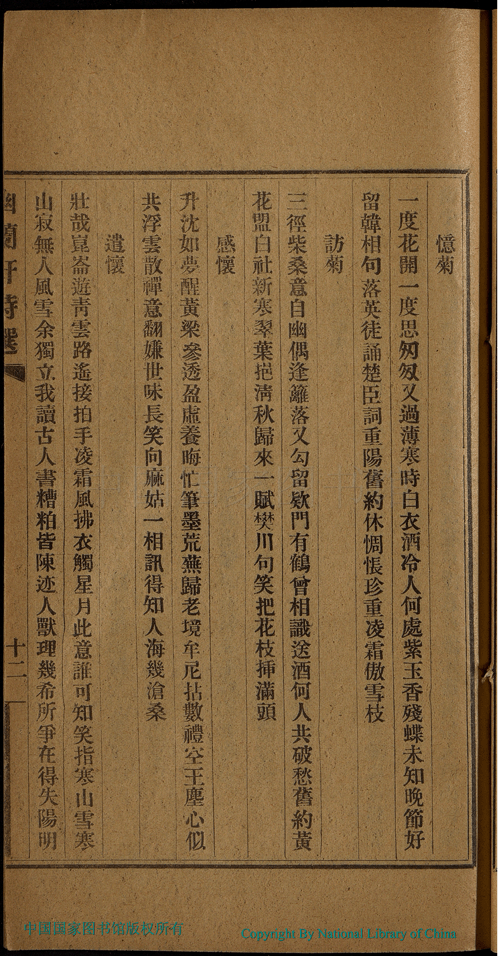 憶菊
一度花開一度思匆匆又過薄寒時白衣酒冷人何處紫玉香殘蝶未知晚節好
留韓相句落英徒誦楚臣詞重陽舊約休惆悵珍重凌霜傲雪枝
訪菊
三徑柴桑意自幽偶逢籬落又勾留欵門有鶴曾相識送酒何人共破愁舊約黃
花盟白社新寒翠葉挹淸秋歸來一賦樊川句笑把花枝揷滿頭
感懷
升沈如夢醒黃粱參透盈虛養晦忙筆墨荒蕪歸老境牟尼拈數禮空王塵心似
共浮雲散禪意翻嫌世味長笑向麻姑一相訊得知人海幾滄桑
遣懷
壯哉崑崙遊靑雲路遙接拍手凌霜風拂衣觸星月此意誰可知笑指寒山雪寒
山寂無人風雪余獨立我讀古人書糟粕皆陳迹人獸理幾希所爭在得失陽明
幽蘭軒詩選
十二
中国国家图书馆版权所有
Copyright By National Library of China